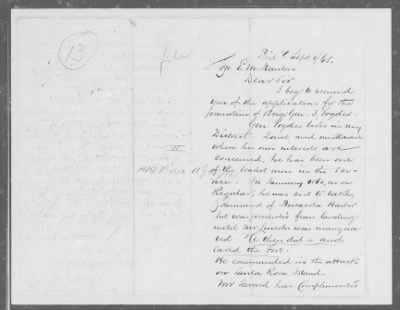 13
file
Phil. Sept 9/65.
Hon. E M Stanton
Dear Sir
I beg to remind
you of the application for the
promotion of Brig Gen. I. Vogdes.
Gen. Vogdes lives in my
District. Quiet and
where his own interests are
concerned, he has been one
of the bravest men in the Ser-
vice. In January 1861, as a
Regular, he was sent to take
Command of Pensacola Harbor
but was prevented from landing
until Mr Lincoln was inaugura-
ted. He then did it and
saved the Fort.
He commanded in the attack
on Santa Rosa Island.
Mr Seward has complimented